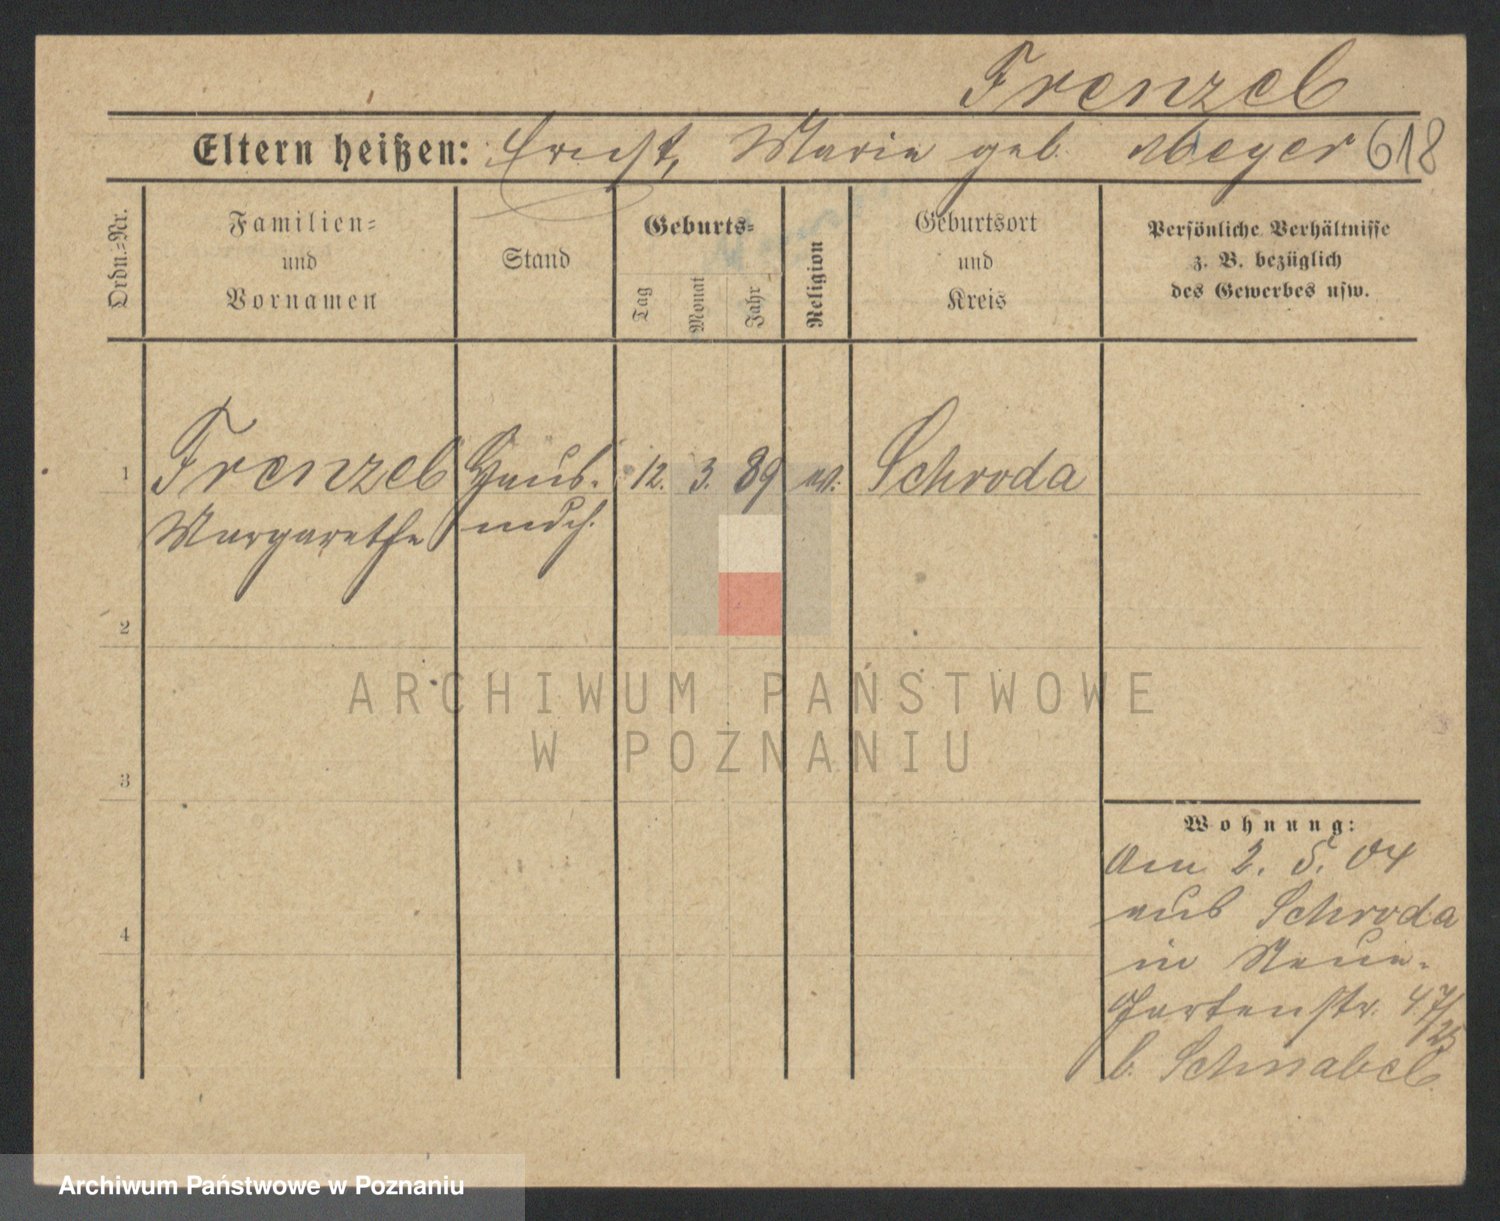 Frenzel
Eltern heißen: Ernst, Marie geb. Meyer 618
Ordn.=Nr.
Familien=
und
Vornamen
Stand
Geburts=
Tag
Monat
Jahr
Religion
Geburtsort
und
Kreis
Persönliche Verhältnisse
z. B. bezüglich
des Gewerbes usw.
1 Frenzel Haus- 12. 3. 89 ev. Schroda
Margarethe mdch.
2
3
4
Wohnung:
Am 2. 5. 04
aus Schroda
in Neue-
Gartenstr. 47/25
b. Schnabel
ARCHIWUM PAŃSTWOWE
W POZNANIU
Archiwum Państwowe w Poznaniu